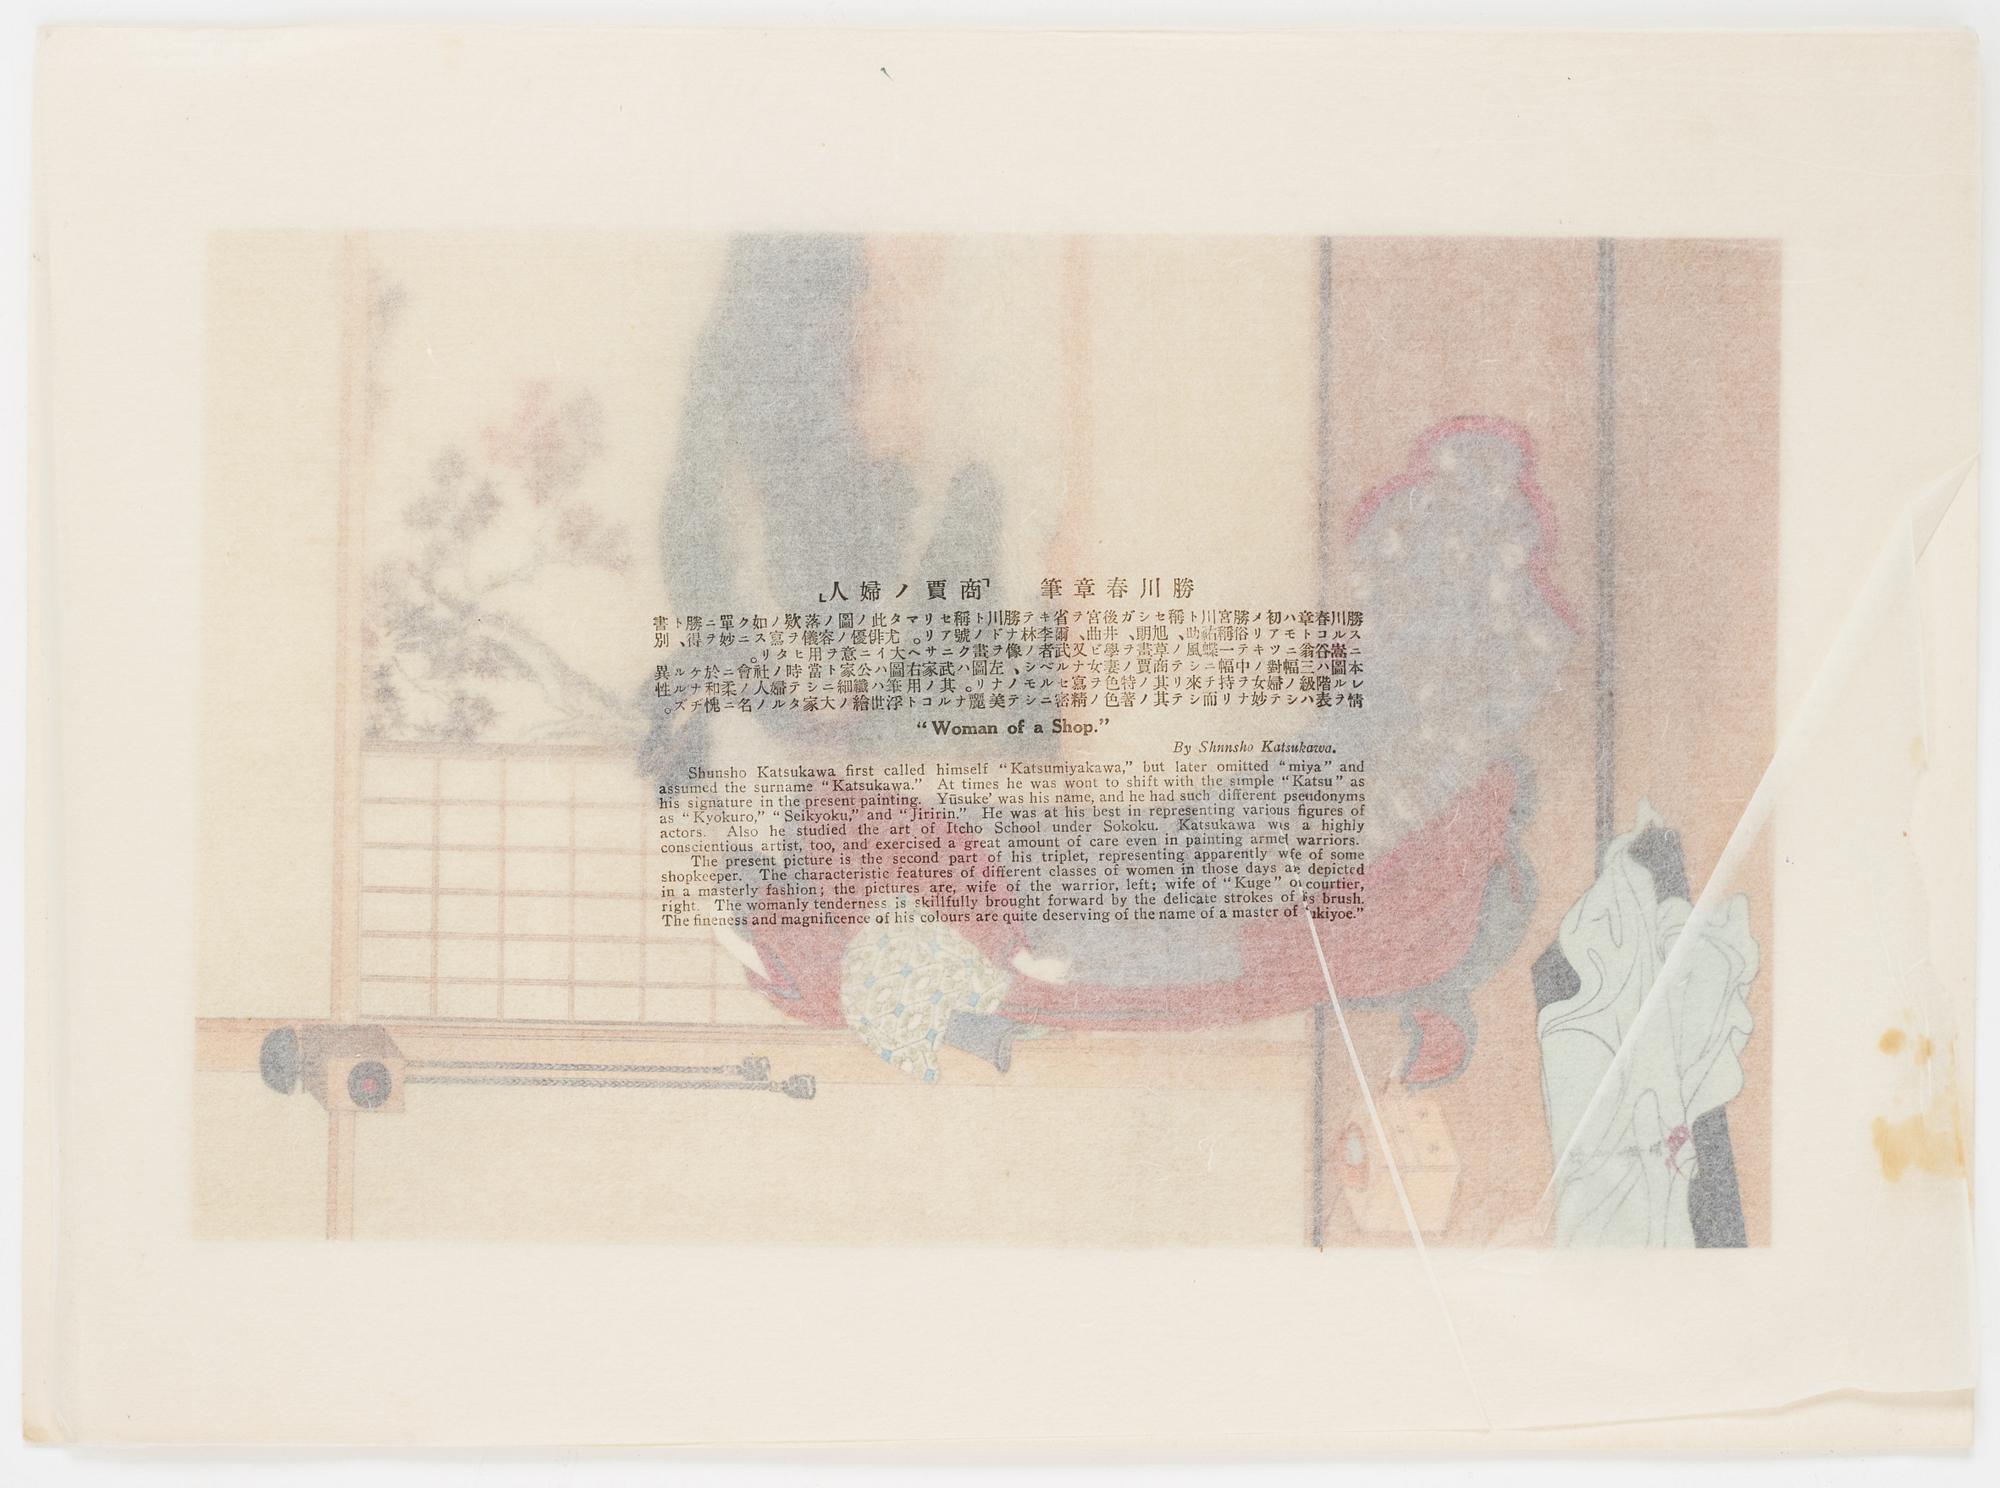 勝川春章筆 「商賈ノ婦人」
勝川春章ハ初メ勝宮川ト稱セシガ後宮ヲ省キテ勝川ト稱セリマタ此ノ圖ノ落欵ノ如ク單ニ勝ト書
スルコトモアリ俗稱祐助、旭朗、井曲、爾李林ナドノ號アリ。尤俳優ノ容儀ヲ寫スニ妙ヲ得、別
ニ嵩谷翁ニツキテ一蝶風ノ草畫ヲ學ビ又武者ノ像ヲ畫クニサヘ大イニ意ヲ用ヒタリ。
本圖ハ三幅對ノ中幅ニシテ商賈ノ妻女ナルベシ、左圖ハ武家右圖ハ公家ト當時ノ社會ニ於ケル異
レル階級ノ婦女ヲ持チ來リ其ノ特色ヲ寫セルモノナリ。其ノ用筆ハ纖細ニシテ婦人ノ柔和ナル性
情ヲ表ハシテ妙ナリ而シテ其ノ著色ノ精密ニシテ美麗ナルコト浮世繪ノ大家タルノ名ニ愧チズ。
“Woman of a Shop.”
By Shnnsho Katsukawa.
Shunsho Katsukawa first called himself “Katsumiyakawa,” but later omitted “miya” and
assumed the surname “Katsukawa.” At times he was wont to shift with the simple “Katsu” as
his signature in the present painting. Yūsuke’ was his name, and he had such different pseudonyms
as “Kyokuro,” “Seikyoku,” and “Jiririn.” He was at his best in representing various figures of
actors. Also he studied the art of Itcho School under Sokoku. Katsukawa was a highly
conscientious artist, too, and exercised a great amount of care even in painting armed warriors.
The present picture is the second part of his triplet, representing apparently wife of some
shopkeeper. The characteristic features of different classes of women in those days are depicted
in a masterly fashion; the pictures are, wife of the warrior, left; wife of “Kuge” or courtier,
right. The womanly tenderness is skillfully brought forward by the delicate strokes of his brush.
The fineness and magnificence of his colours are quite deserving of the name of a master of “ukiyoe.”